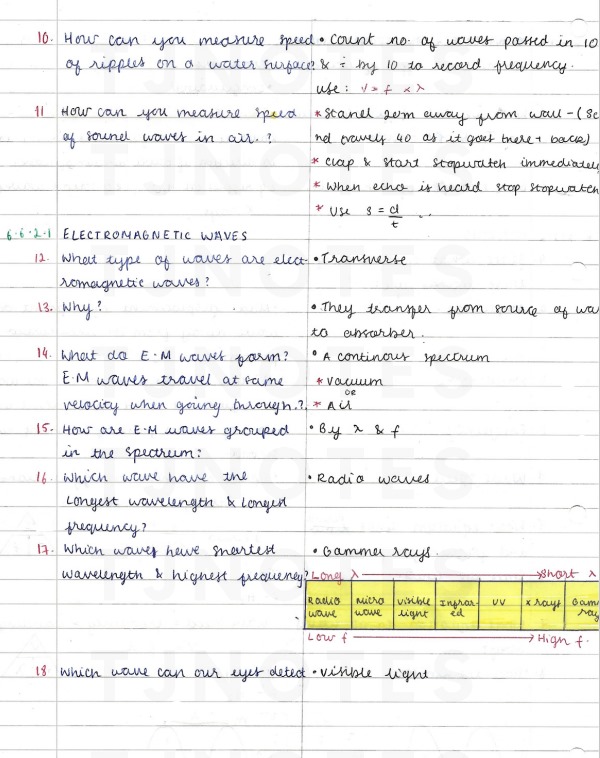 10. How can you measure speed • Count no. of waves passed in 10
of ripples on a water surface? & ÷ by 10 to record frequency.
use: v = f × λ
11 How can you measure speed * Stand 20m away from wall - (so
of sound waves in air.? nd travels 40 as it goes there + back)
* Clap & start stopwatch immediately
* When echo is heard stop stopwatch
* Use s = d/t
6.6.2.1 ELECTROMAGNETIC WAVES
12. What type of waves are elect- • Transverse
romagnetic waves?
13. Why? • They transfer from source of wa
to absorber.
14. What do E.M waves form? • A continous spectrum
E.M waves travel at same * Vacuum
OR
velocity when going through.? * Air
15. How are E.M waves grouped • By λ & f
in the spectrum?
16. Which wave have the • Radio waves
Longest wavelength & Longest
frequency?
17. Which waves have shortest • Gamma rays.
wavelength & highest frequency? Long λ → Short λ
Radio Micro Visible Infrar- UV x rays Gam
wave wave light ed ray
Low f → High f.
18 Which wave can our eyes detect • Visible light
TJNOTES
TJNOTES
TJNOTES
TJNOTES
TJNOTES
TJNOTES